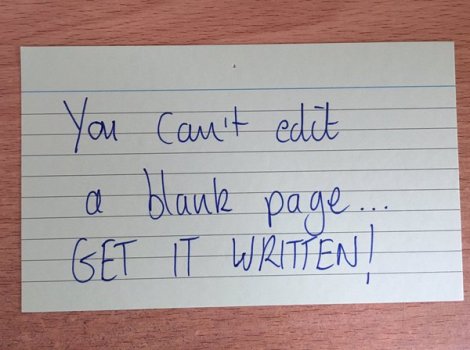 You can't edit
a blank page...
GET IT WRITTEN!